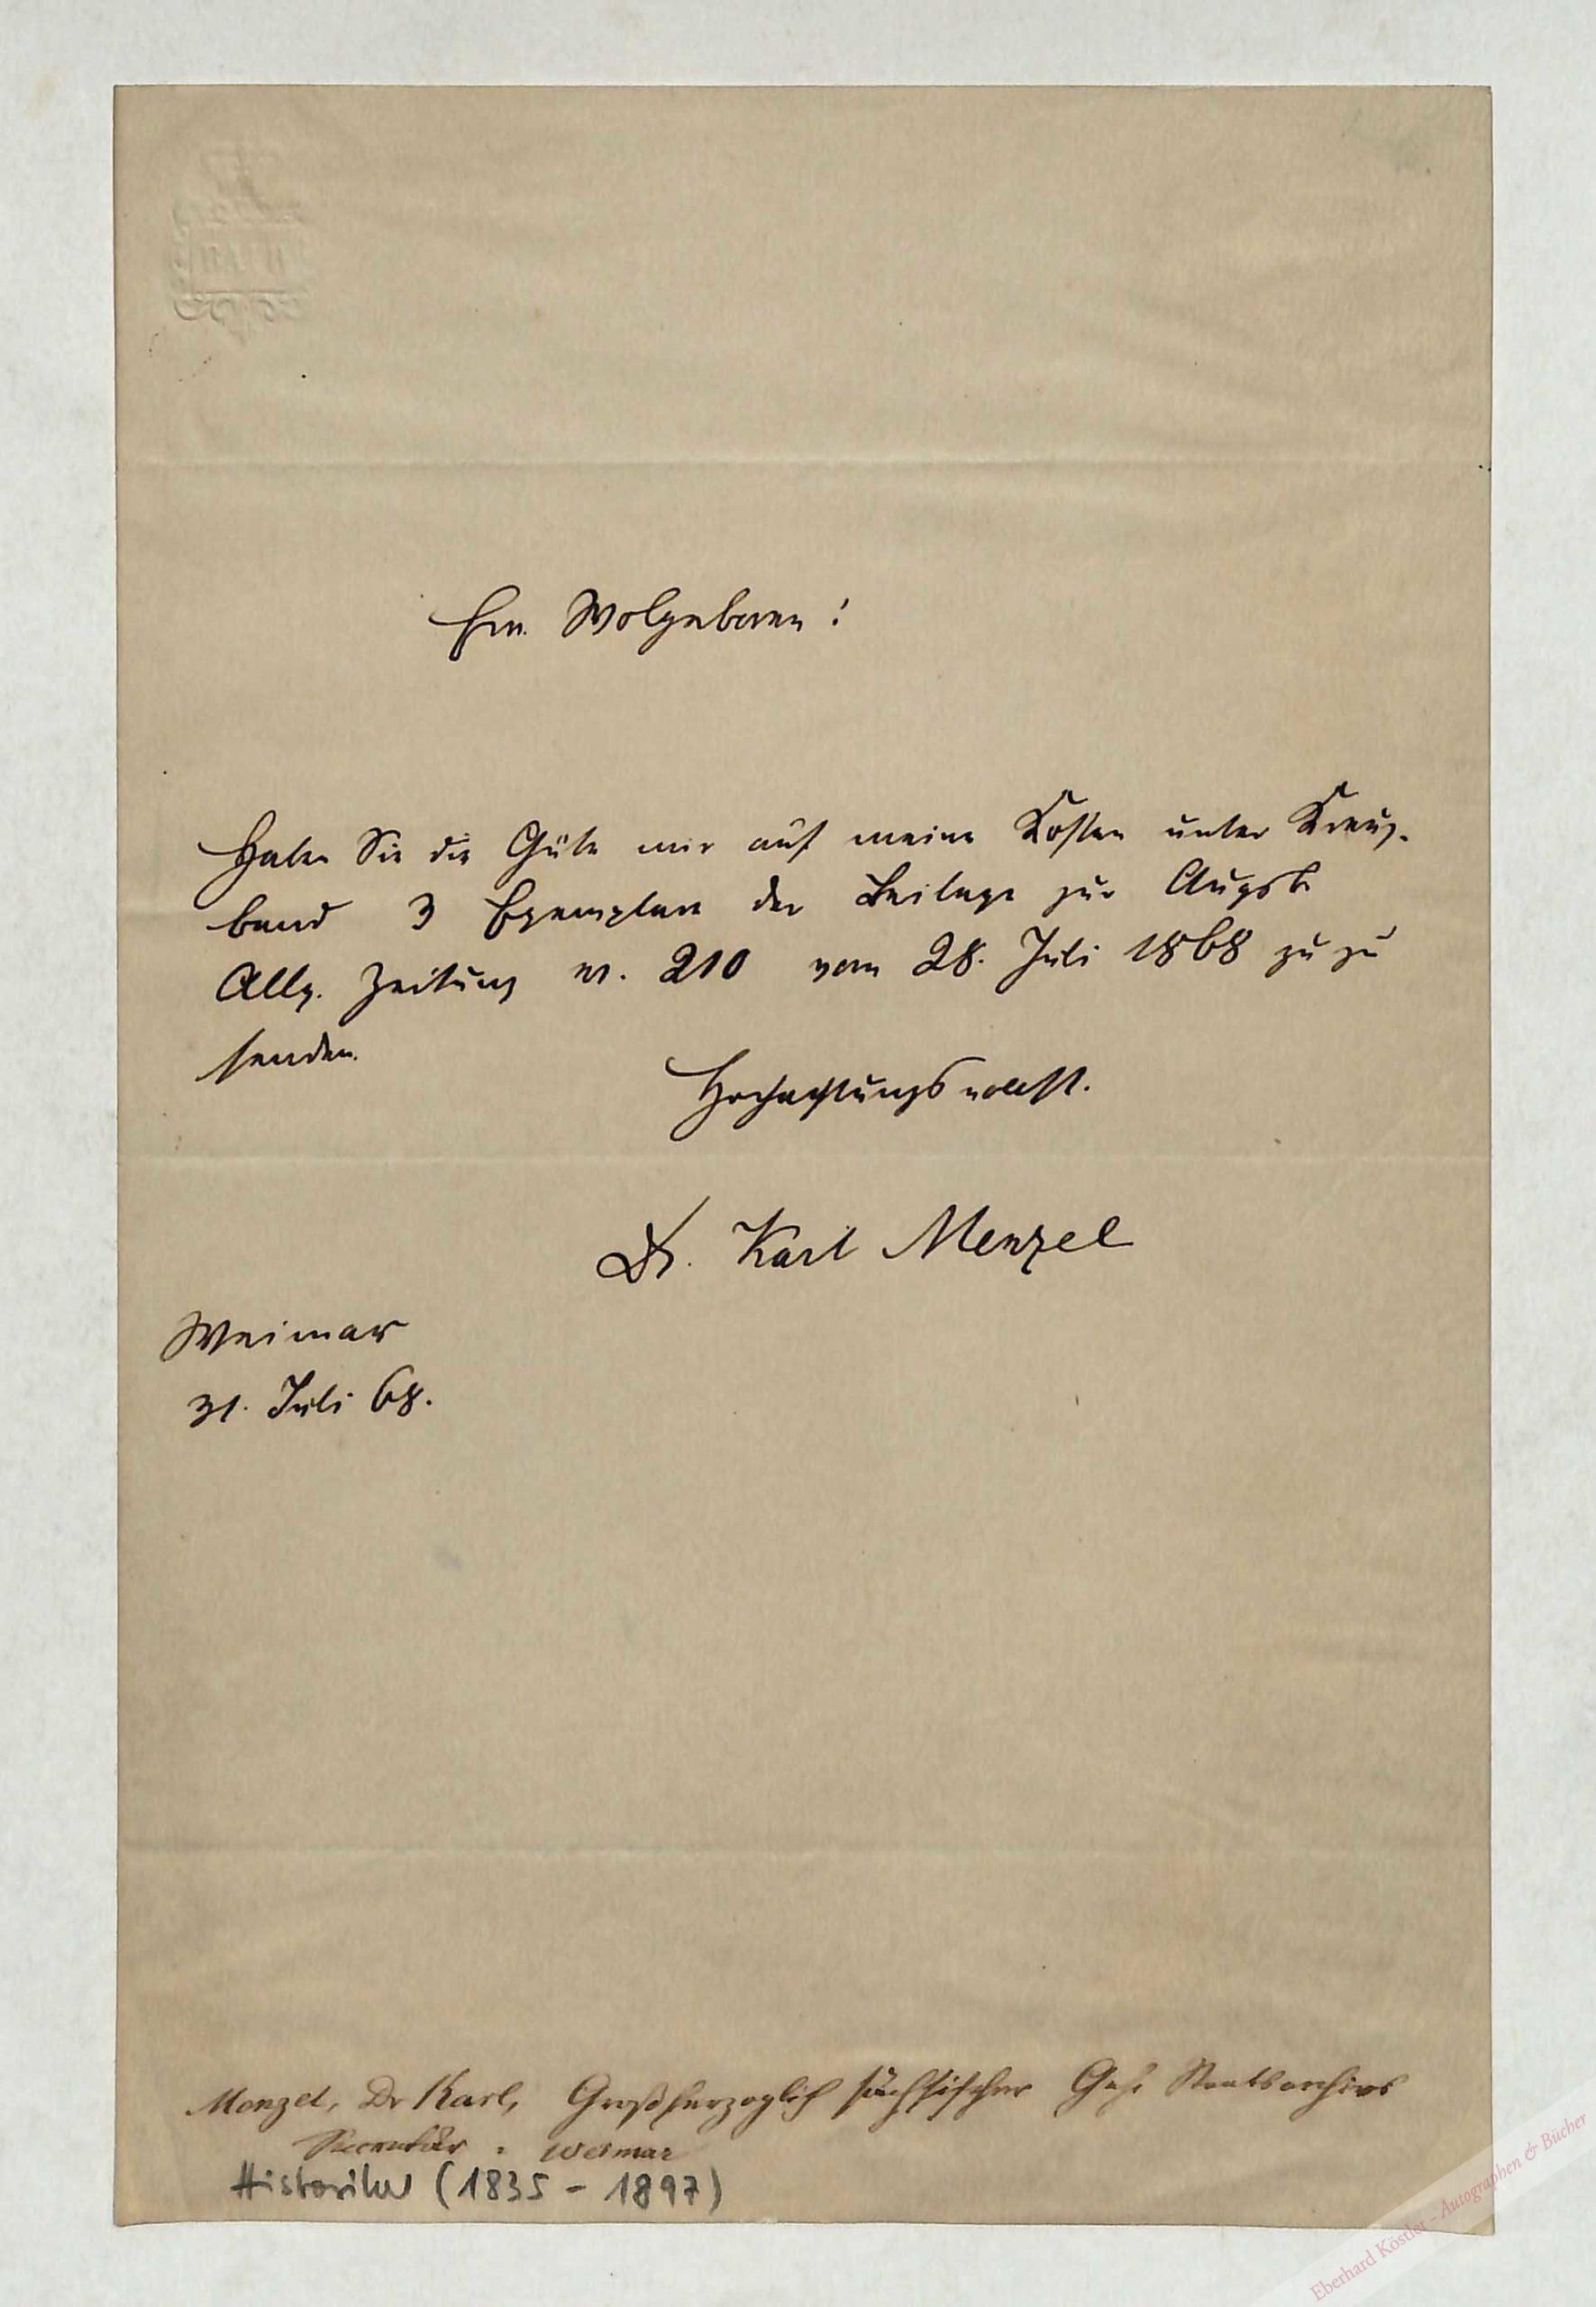 Ew. Wolgeboren!
Haben Sie die Güte mir auf meine Kosten unter Kreuz-
band 3 Exemplare der Beilage zur Augsb.
Allg. Zeitung nr. 210 vom 28. Juli 1868 zu zu
senden.
Hochachtungsvollst.
Dr. Karl Menzel
Weimar
31. Juli 68.
Menzel, Dr Karl, Großherzoglich sächsischer Geh. Staatsarchivs
Secretär. Weimar
Historiker (1835 - 1897)
Eberhard Köstler - Autographen & Bücher